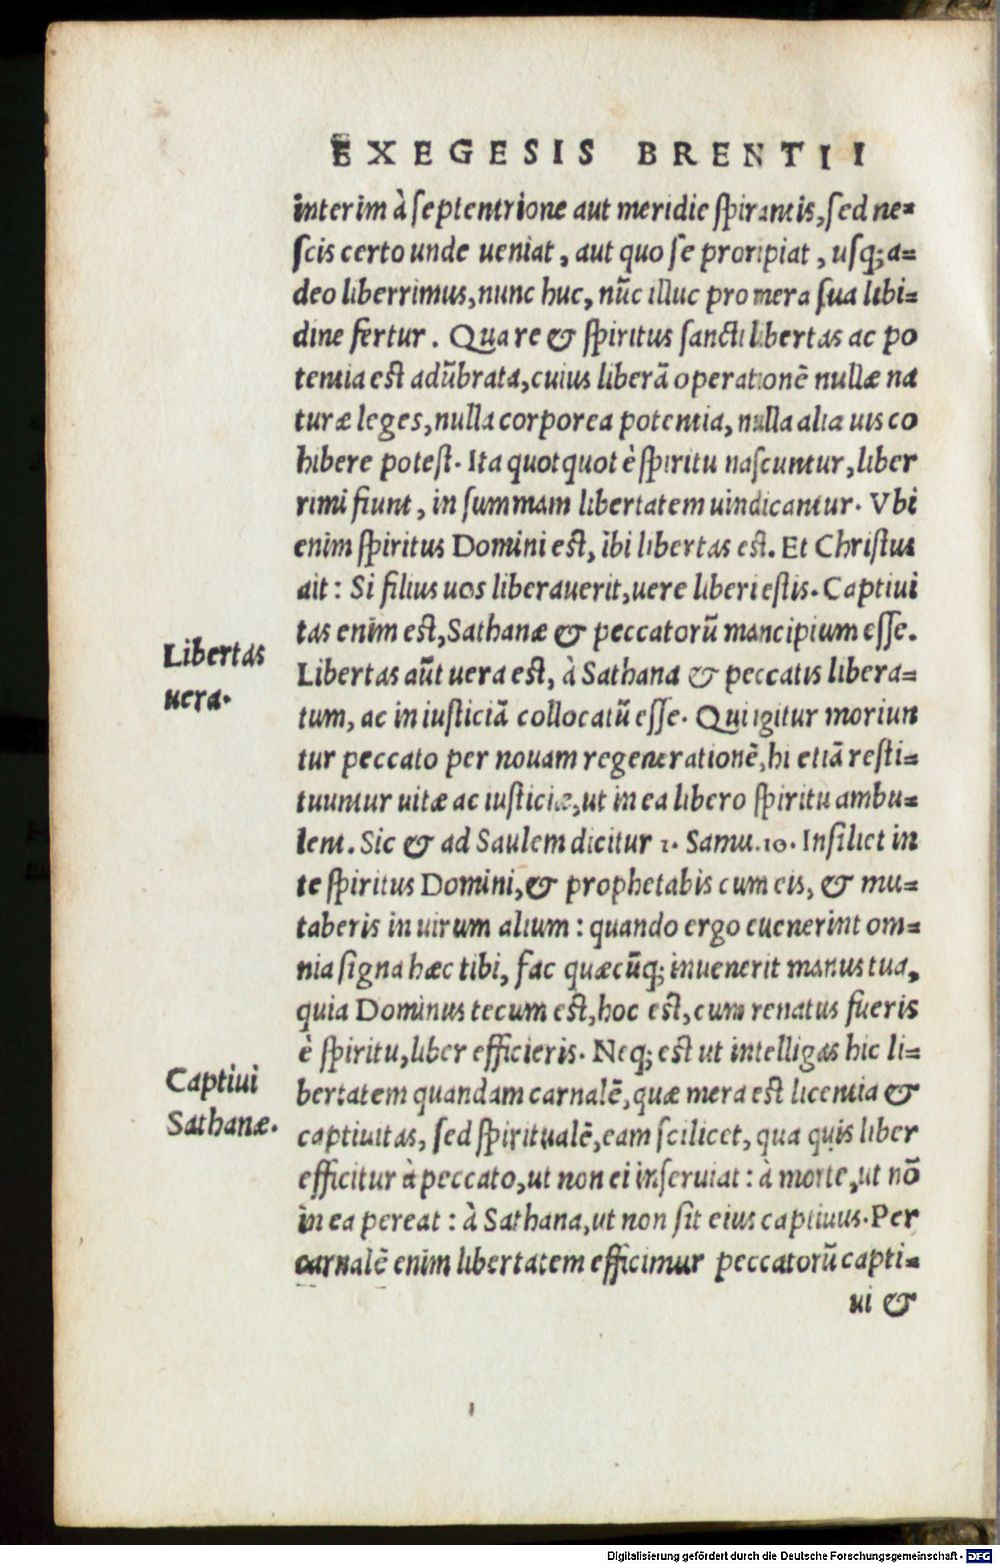 EXEGESIS BRENTII
interim à septentrione aut meridie spirantis, sed ne=
scis certo unde ueniat, aut quo se proripiat, usq; a=
deo liberrimus, nunc huc, nūc illuc pro mera sua libi=
dine fertur. Quare & spiritus sancti libertas ac po
tentia est adūbrata, cuius liberā operationē nullæ na
turæ leges, nulla corporea potentia, nulla alia uis co
hibere potest. Ita quotquot è spiritu nascuntur, liber
rimi fiunt, in summam libertatem uindicantur. Vbi
enim spiritus Domini est, ibi libertas est. Et Christus
ait: Si filius uos liberauerit, uere liberi estis. Captiui
tas enim est, Sathanæ & peccatorū mancipium esse.
Libertas
uera.
Libertas aūt uera est, à Sathana & peccatis libera=
tum, ac in iusticiā collocatū esse. Qui igitur moriun
tur peccato per nouam regenerationē, hi etiā resti=
tuuntur uitæ ac iusticiæ, ut in ea libero spiritu ambu=
lent. Sic & ad Saulem dicitur 1. Samu. 10. Insiliet in
te spiritus Domini, & prophetabis cum eis, & mu=
taberis in uirum alium: quando ergo euenerint om=
nia signa hæc tibi, fac quæcūq; inuenerit manus tua,
quia Dominus tecum est, hoc est, cum renatus fueris
è spiritu, liber efficieris. Neq; est ut intelligas hic li=
Captiui
Sathanæ.
bertatem quandam carnalē, quæ mera est licentia &
captiuitas, sed spiritualē, eam scilicet, qua quis liber
efficitur à peccato, ut non ei inseruiat: à morte, ut nō
in ea pereat: à Sathana, ut non sit eius captiuus. Per
carnalē enim libertatem efficimur peccatorū capti=
ui &
Digitalisierung gefördert durch die Deutsche Forschungsgemeinschaft - DFG